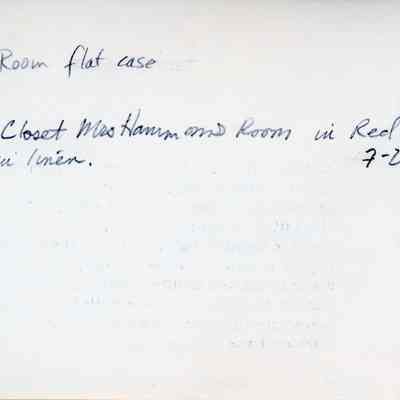 Room flat case
Closet Mrs Hammond Room in Red
linen.
7-2